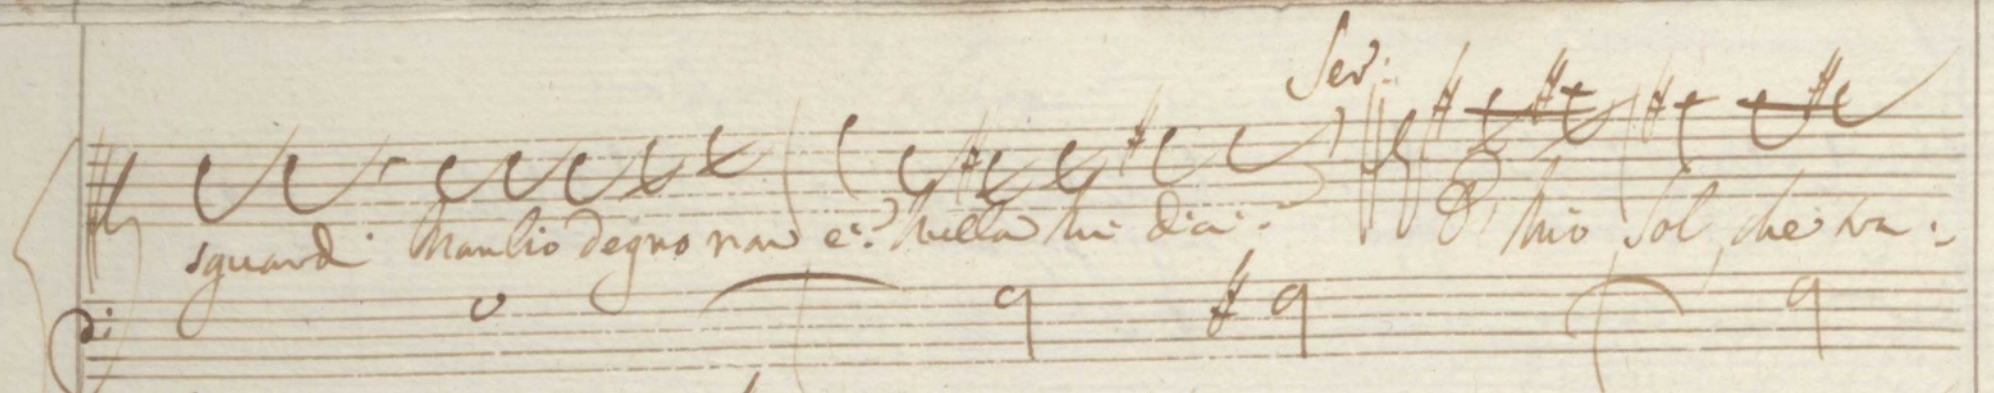 Ser:
sguardi Manlio degno non è? nulla mi dici? È mio sol che va: